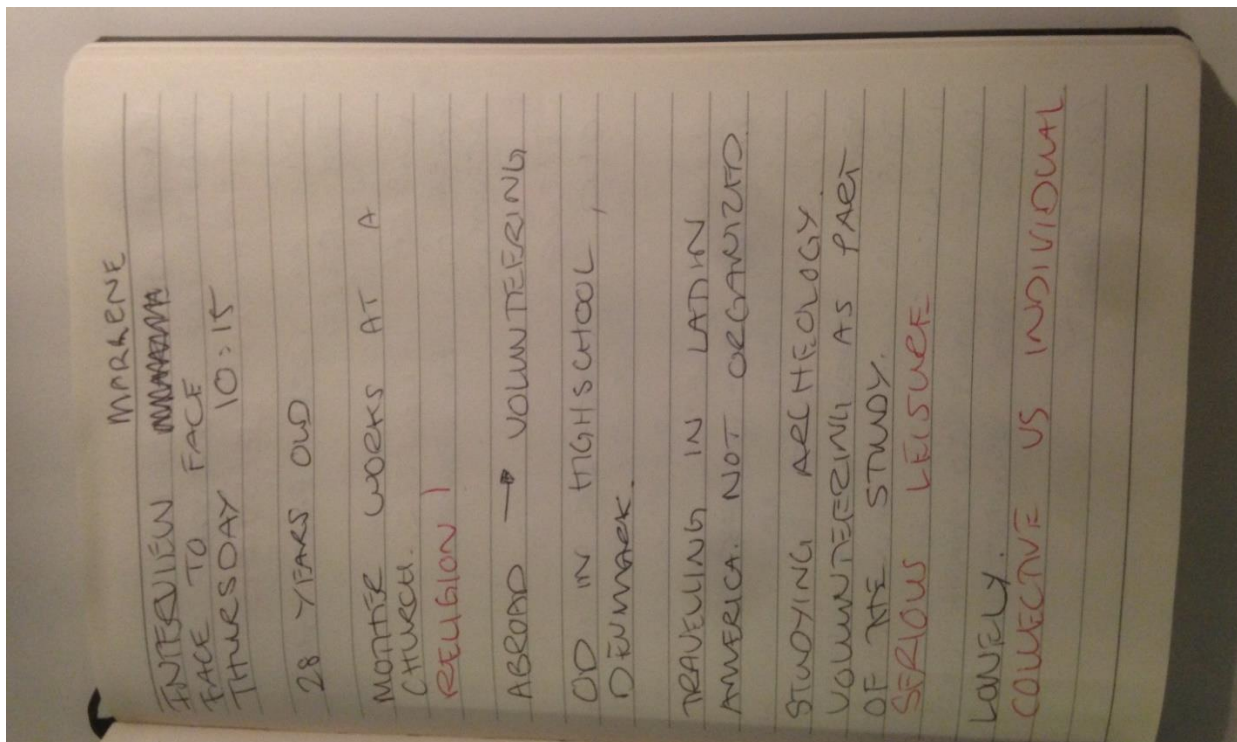 MARLENE
INTERVIEW
FACE TO FACE
THURSDAY 10:15
28 YEARS OLD
MOTHER WORKS AT A
CHURCH.
RELIGION!
ABROAD → VOLUNTEERING
OD IN HIGHSCHOOL,
DENMARK.
TRAVELING IN LATIN
AMERICA. NOT ORGANIZED.
STUDYING ARCHEOLOGY.
VOLUNTEERING AS PART
OF THE STUDY.
SERIOUS LEISURE
LONELY.
COLLECTIVE VS INDIVIDUAL